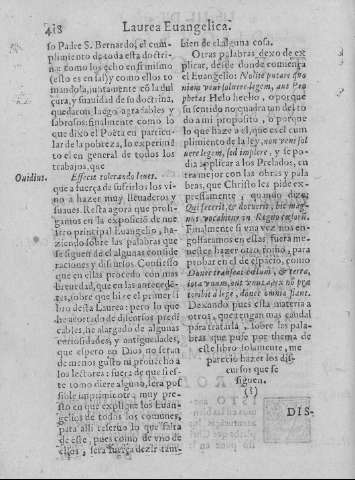 418 Laurea Euangelica.
so Padre S. Bernardo, el cum-
plimiento de toda esta doctri-
na: como los echo en si mismo
(esto es en las) y como ellos to
mandola, juntamente cõ la dul
çura, y suauidad de su doctrina,
quedaron luego agradables y
sabrosos: finalmente como lo
que dixo el Poëta en particu-
lar de la pobreza, lo experimẽ
to el en general de todos los
trabajos, que
Ouidius. Effecit tolerando lenes.
que a fuerça de sufrirlos: los vi
no a hazer muy lleuaderos y
suaues. Resta agora que prosi-
gamos en la exposiciõ de nue-
stro principal Euangelio, ha-
ziendo sobre las palabras que
se siguen de el algunas conside
raciones y discursos. Confiesso
que en ellas procedo con mas
breuedad, que en las antecedẽ-
tes, sobre que hize el primer li
bro desta Laurea: pero lo que
he acortado de discursos predi
cables, he alargado de algunas
curiosidades, y antiguedades,
que espero en Dios no seran
de menos gusto ni prouecho a
los lectores: fuera de que si es-
te tomo diere alguno, sera pos
sible imprimir otro muy pre-
sto en que explique los Euan-
gelios de todos los comunes,
para alli reseruo lo que falta
de este, pues como de vno de
ellos, sera fuerça dezir tam-
bien de el alguna cosa.
Otras palabras dexo de ex
plicar, desde donde comiença
el Euangelio: Nolite putare quo
niam veni soluere legem, aut Pro
phetas. Helo hecho, o porque
su sentido no quadra tan del to
do a mi proposito, o porque
lo que haze a el, que es el cum
plimiento de la ley, non veni sol
uere legem, sed implere, y se po-
dia aplicar a los Prelados, en
tra mejor con las obras y pala
bras, que Christo les pide ex-
pressamente, quando dize:
Qui fecerit, & docuerit, hic mag-
nus vocabitur in Regno cælorũ.
Finalmente si vna vez nos en-
golfaramos en ellas, fuera me-
nester hazer otro tomo, para
probar en el de espacio, como
Donec transeat cælum, & terra,
iota vnum, aut vnus apex no præ
teribit a lege, donec omnia fiant.
Dexando pues esta materia a
otros, que tengan mas caudal
para tratarla, sobre las pala-
bras que puse por thema de
este libro solamente, me
parecio hazer los dis-
cursos que se
siguen.
(†)
DIS-